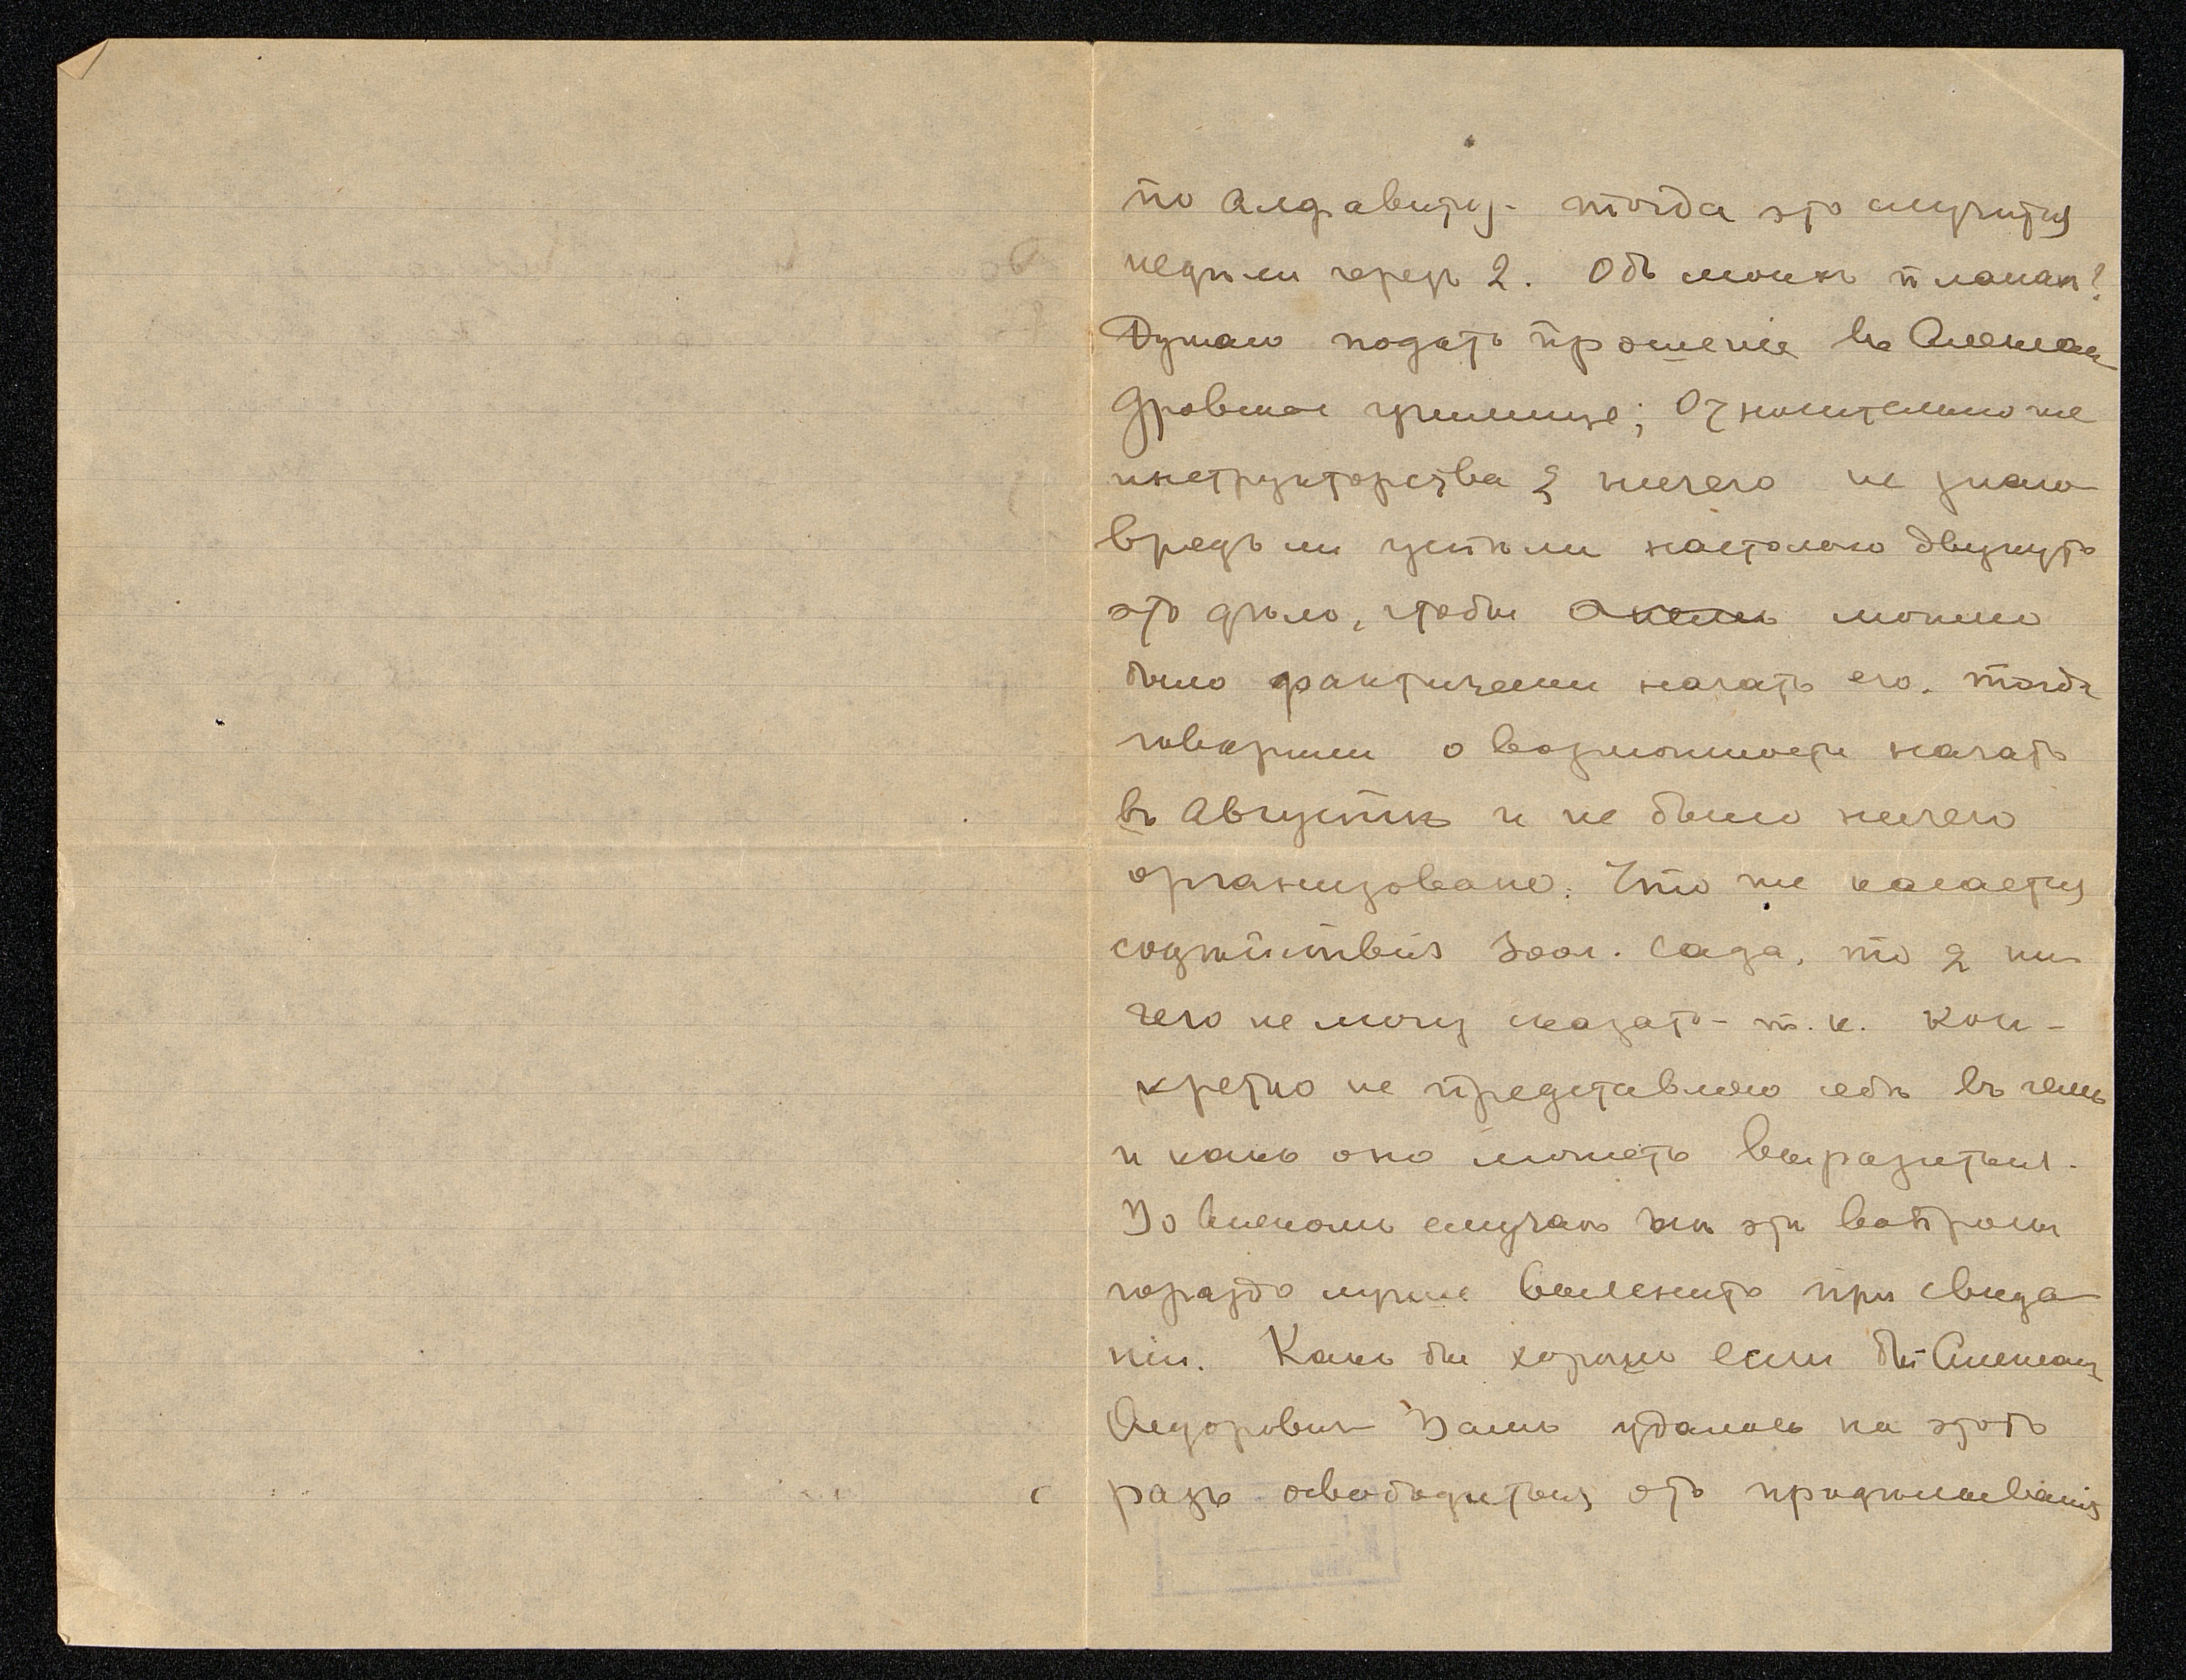 по алфавиту - тогда это случится
недѣли черезъ 2. Объ моихъ планах?
Думаю подать прошеніе въ Алексан
дровское училище; относительно же
инструкторства я ничего не знаю
врядъ ли успѣли настолько двинуть
это дѣло, чтобы можно
было фактически начать его. тогда
говорили о возможности начать
въ Августѣ и не было ничего
организовано. Что же касается
содѣйствія Зоол. Сада, то я ни
чего не могу сказать - т.к. кон-
кретно не представляю себѣ въ чемъ
и какъ оно можетъ выразиться.
Во всякомъ случаѣ эти вопросы
гораздо лучше выяснить при свида
ніи. Какъ бы хорошо если бы Алексан
Ѳедорович Вамъ удалось на этотъ
разъ освободиться отъ продѣлыванія